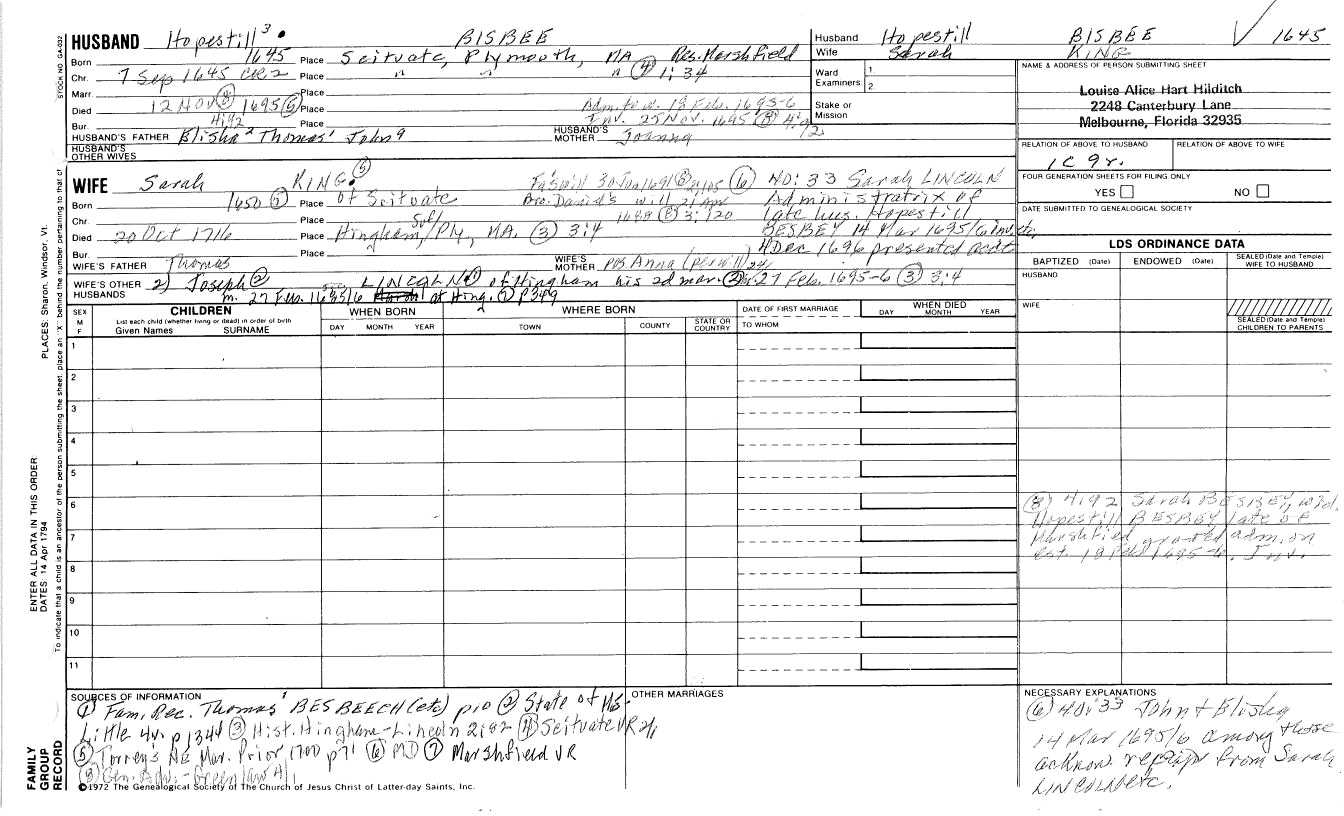 HUSBAND Hopestill³ BISBEE
Born 1645 Place Scituate, Plymouth, MA Res. Marshfield
Chr. 7 Sep 1645 Place " " " (4) 1:34
Marr. Place
Died 12 Nov (8) 1695 (6) Place Adm. to w. 18 Feb. 1695-6
4:92 Inv. 25 Nov. 1695 (8) 4:92
Bur. Place
HUSBAND'S FATHER Elisha² Thomas¹ John
HUSBAND'S MOTHER Joanna
HUSBAND'S OTHER WIVES
Husband Hopestill BISBEE √ 1645
Wife Sarah KING
Ward Examiners 1 2
Stake or Mission
NAME & ADDRESS OF PERSON SUBMITTING SHEET
Louise Alice Hart Hilditch
2248 Canterbury Lane
Melbourne, Florida 32935
RELATION OF ABOVE TO HUSBAND RELATION OF ABOVE TO WIFE
1C 9r.
FOUR GENERATION SHEETS FOR FILING ONLY
YES NO
DATE SUBMITTED TO GENEALOGICAL SOCIETY
WIFE Sarah KING (5) Fa's will 30 Jun 1691 (6) 40:33 Sarah LINCOLN
Born 1650 (5) Place of Scituate Bro. Daniel's will 21 Apr Administratrix of
Chr. Place Suf/ 1688 (8) 3:120 late hus. Hopestill
Died 20 Oct 1716 Place Hingham, Ply, MA. (3) 3:4 BESBEY 14 Mar 1695/6
Bur. Place 4 Dec 1696 presented acct
WIFE'S FATHER Thomas
WIFE'S MOTHER pos Anna (per will)
WIFE'S OTHER HUSBANDS 2) Joseph (2) LINCOLN of Hingham his 2d mar. (2) 27 Feb. 1695-6 (3) 3:4
m. 27 Feb. 1695/6 at Hing. p 349
LDS ORDINANCE DATA
BAPTIZED (Date) ENDOWED (Date) SEALED (Date and Temple) WIFE TO HUSBAND
HUSBAND
WIFE
SEALED (Date and Temple) CHILDREN TO PARENTS
SEX M F
CHILDREN
List each child (whether living or dead) in order of birth
Given Names SURNAME
WHEN BORN
DAY MONTH YEAR
WHERE BORN
TOWN COUNTY STATE OR COUNTRY
DATE OF FIRST MARRIAGE
TO WHOM
WHEN DIED
DAY MONTH YEAR
1
2
3
4
5
6
7
8
9
10
11
(8) 4:92 Sarah BESBEY, wid.
Hopestill BESBEY late of
Marshfield granted adm. on
est. 18 Feb 1695-6. Inv.
SOURCES OF INFORMATION
(1) Fam. Rec. Thomas¹ BESBEECH (etc) p10 (2) State of Ms-
Little 4v. p 1344 (3) Hist. Hingham-Lincoln 2:82 (4) Scituate VR 2v
(5) Torrey's NE Mar. Prior 1700 p 71 (6) MD (7) Marshfield VR
(8) Gen. Adv.-Greenlaw
OTHER MARRIAGES
NECESSARY EXPLANATIONS
(6) 40:33 John & Elisha
14 Mar 1695/6 among those
acknow. receipt from Sarah
LINCOLN etc.
©1972 The Genealogical Society of The Church of Jesus Christ of Latter-day Saints, Inc.
STOCK NO. GA-032
PLACES: Sharon, Windsor, Vt.
To indicate that a child is an ancestor of the person submitting the sheet, place an "X" behind the number pertaining to that of
ENTER ALL DATA IN THIS ORDER
DATES: 14 Apr 1794
FAMILY GROUP RECORD